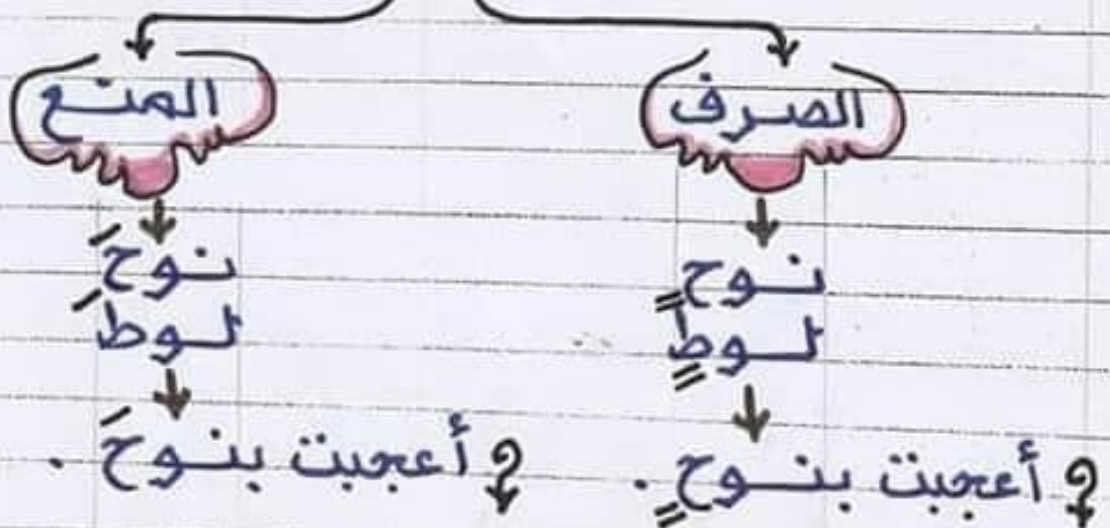 الصرف
نوحٍ
لوطٍ
أعجبت بنوحٍ .
المنع
نوحَ
لوطَ
أعجبت بنوحَ .